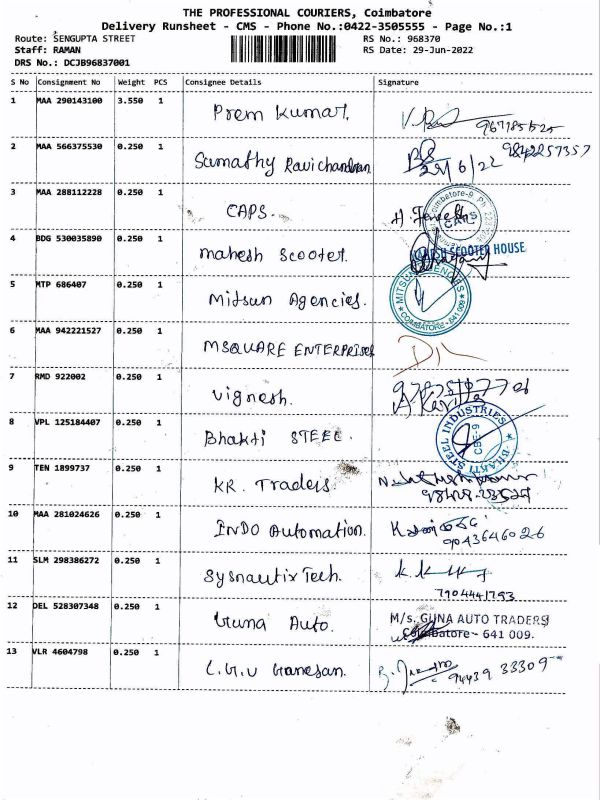 THE PROFESSIONAL COURIERS, Coimbatore
Delivery Runsheet - CMS - Phone No.:0422-3505555 - Page No.:1
Route: SENGUPTA STREET RS No.: 968370
Staff: RAMAN RS Date: 29-Jun-2022
DRS No.: DCJB96837001
S No Consignment No Weight PCS Consignee Details Signature
1 MAA 290143100 3.550 1 Prem Kumar.
2 MAA 566375530 0.250 1 Sumathy Ravichandran 29/6/22 9842257357
3 MAA 288112228 0.250 1 CAPS. CAPS
4 BDG 530035890 0.250 1 mahesh Scooter. SCOOTER HOUSE
5 MTP 686407 0.250 1 Mitsun Agencies. MITSUN AGENCIES COIMBATORE - 641 009
6 MAA 942221527 0.250 1 MSQUARE ENTERPRISES
7 RMD 922002 0.250 1 Vignesh.
8 VPL 125184407 0.250 1 Bhakti STEEL. BHAKTI STEEL INDUSTRIES CBE-9
9 TEN 1899737 0.250 1 KR. Traders.
10 MAA 281024626 0.250 1 INDO Automation. 9043646026
11 SLM 298386272 0.250 1 Sysnautix Tech. 7904441793
12 DEL 528307348 0.250 1 Guna Auto. M/s. GUNA AUTO TRADERS
Coimbatore - 641 009.
13 VLR 4604798 0.250 1 L.G.V Ganesan. 94439 33309